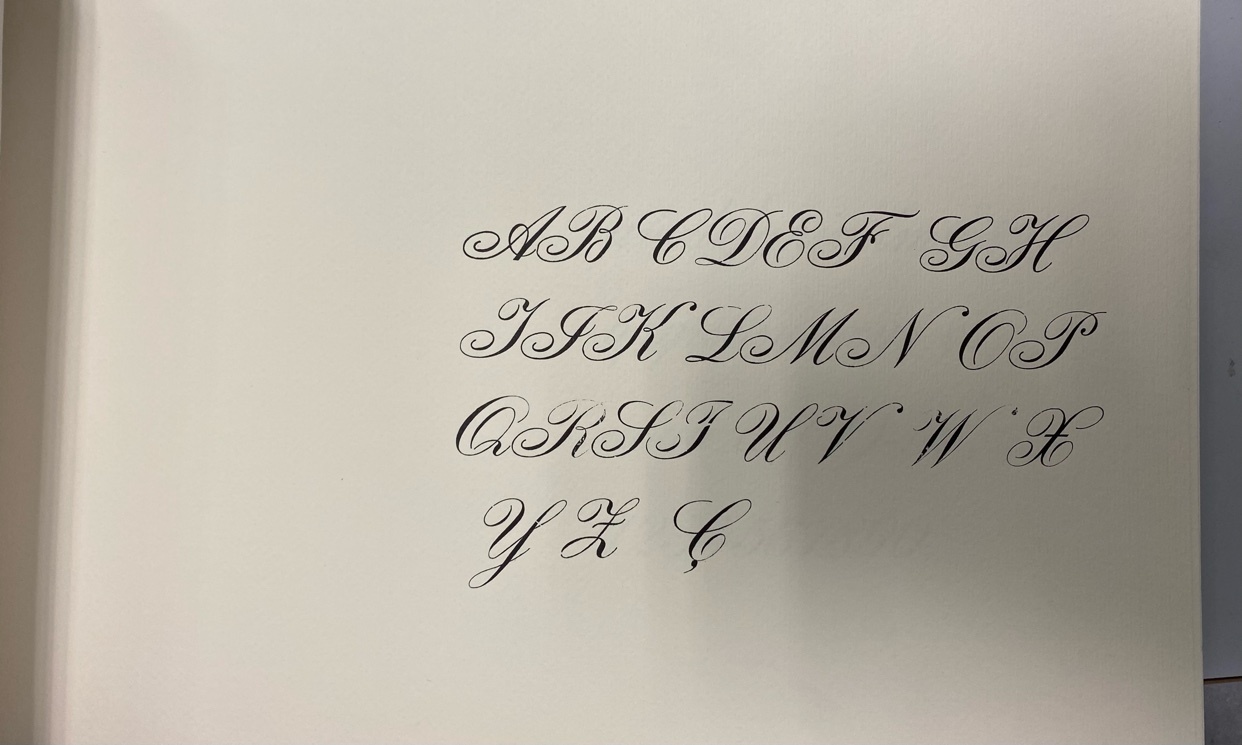 A B C D E F G H
I J K L M N O P
Q R S T U V W X
Y Z Ç